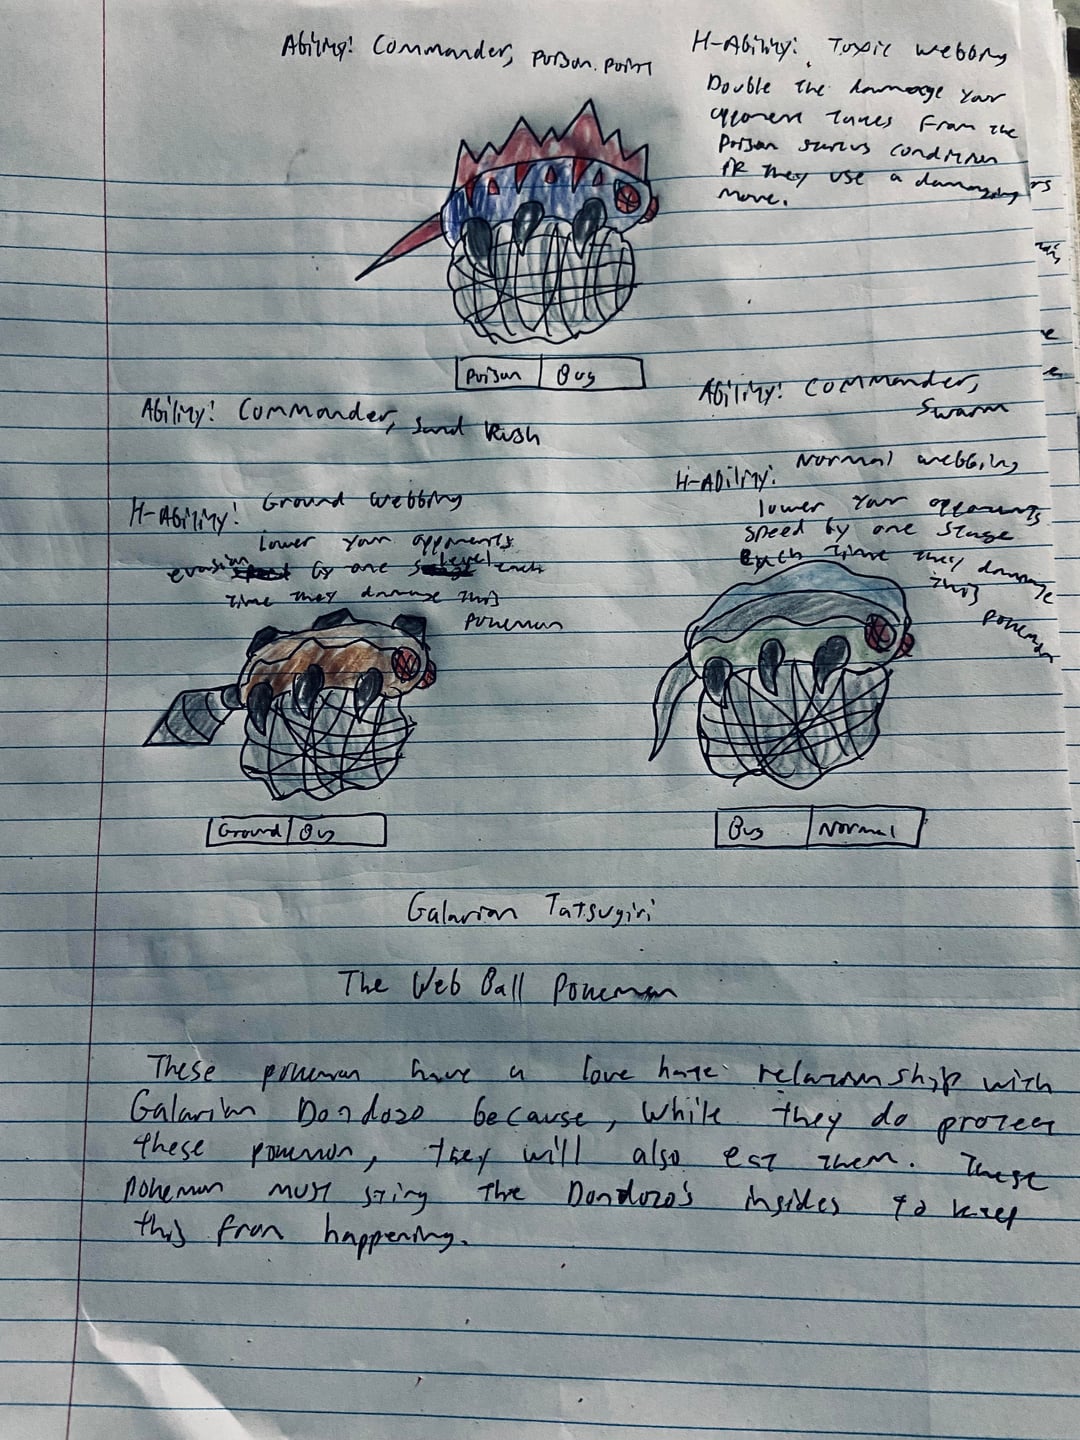 Ability: Commander, Poison point
H-Ability: Toxic webbing
Double the damage your
opponent takes from the
poison status condition
if they use a damaging
move.
Poison Bug
Ability: Commander, Sand Rush
H-Ability: Ground webbing
lower your opponents
evasion by one level each
time they damage this
pokemon
Ground Bug
Ability: Commander,
Swarm
H-Ability: Normal webbing
lower your opponents
speed by one stage
Each time they damage
this
pokemon
Bug Normal
Galarian Tatsugiri
The Web Ball Pokemon
These pokemon have a love hate relationship with
Galarian Dondozo because, while they do protect
these pokemon, they will also eat them. These
pokemon must sting the Dondozo's insides to keep
this from happening.